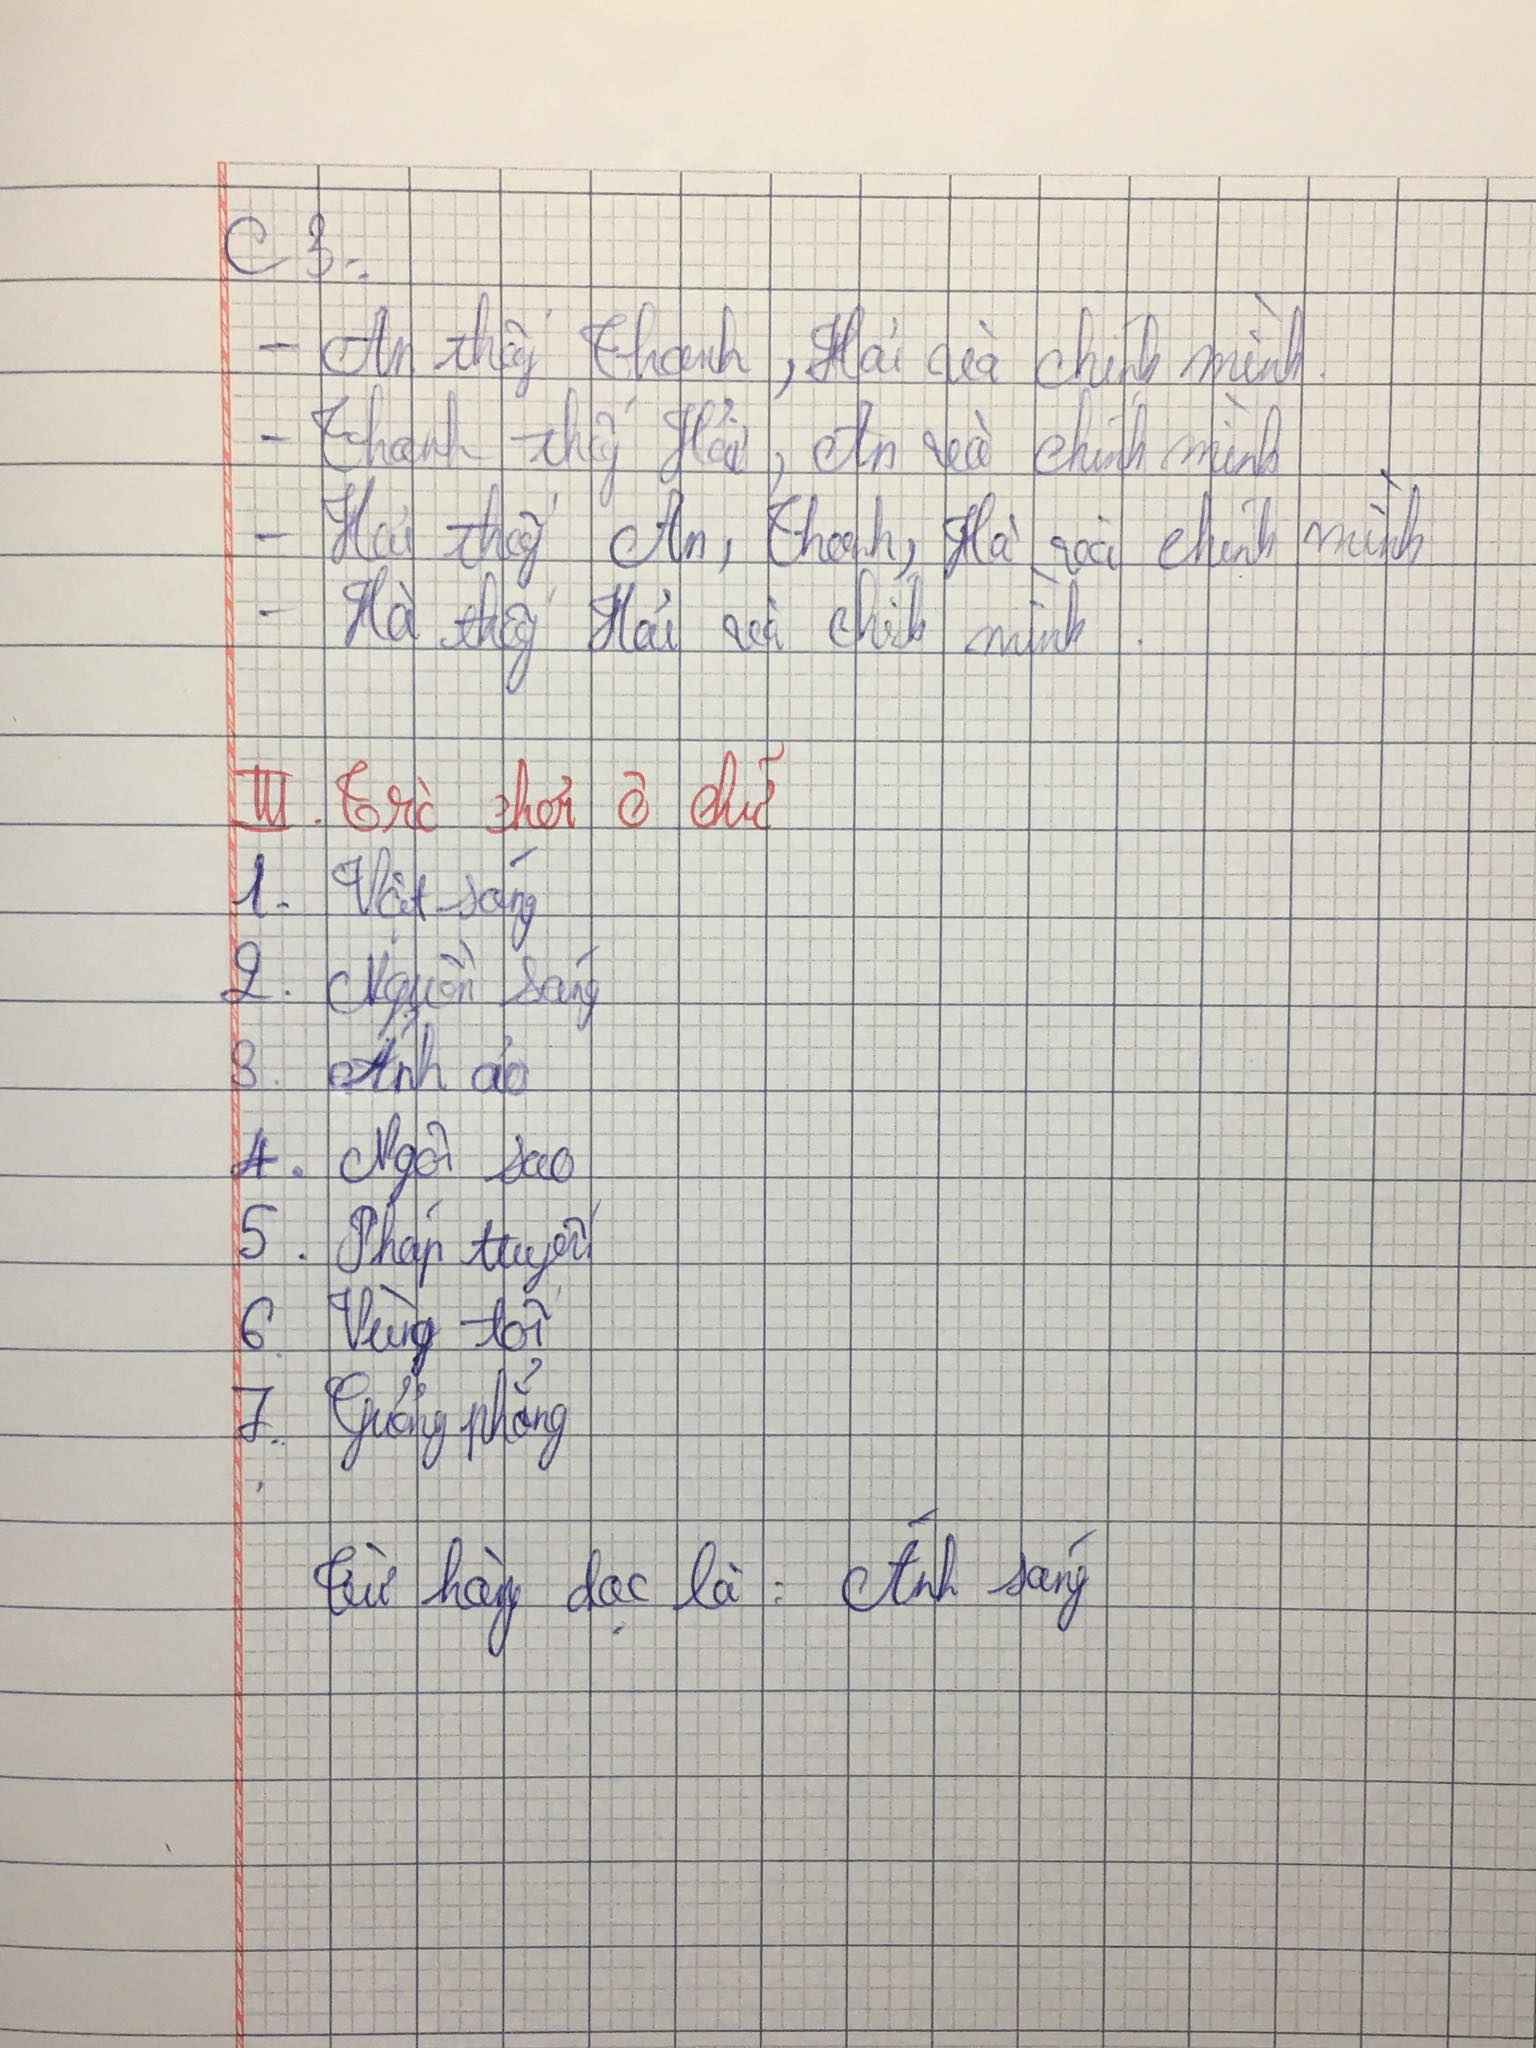 C3:
- An thấy Thanh, Hải và chính mình.
- Thanh thấy Hải, An và chính mình
- Hải thấy An, Thanh, Hà và chính mình
- Hà thấy Hải và chính mình.
III. Trò chơi ô chữ
1. Vật sáng
2. Nguồn sáng
3. Ảnh ảo
4. Ngôi sao
5. Pháp tuyến
6. Vùng tối
7. Gương phẳng
Từ hàng dọc là: Ánh sáng